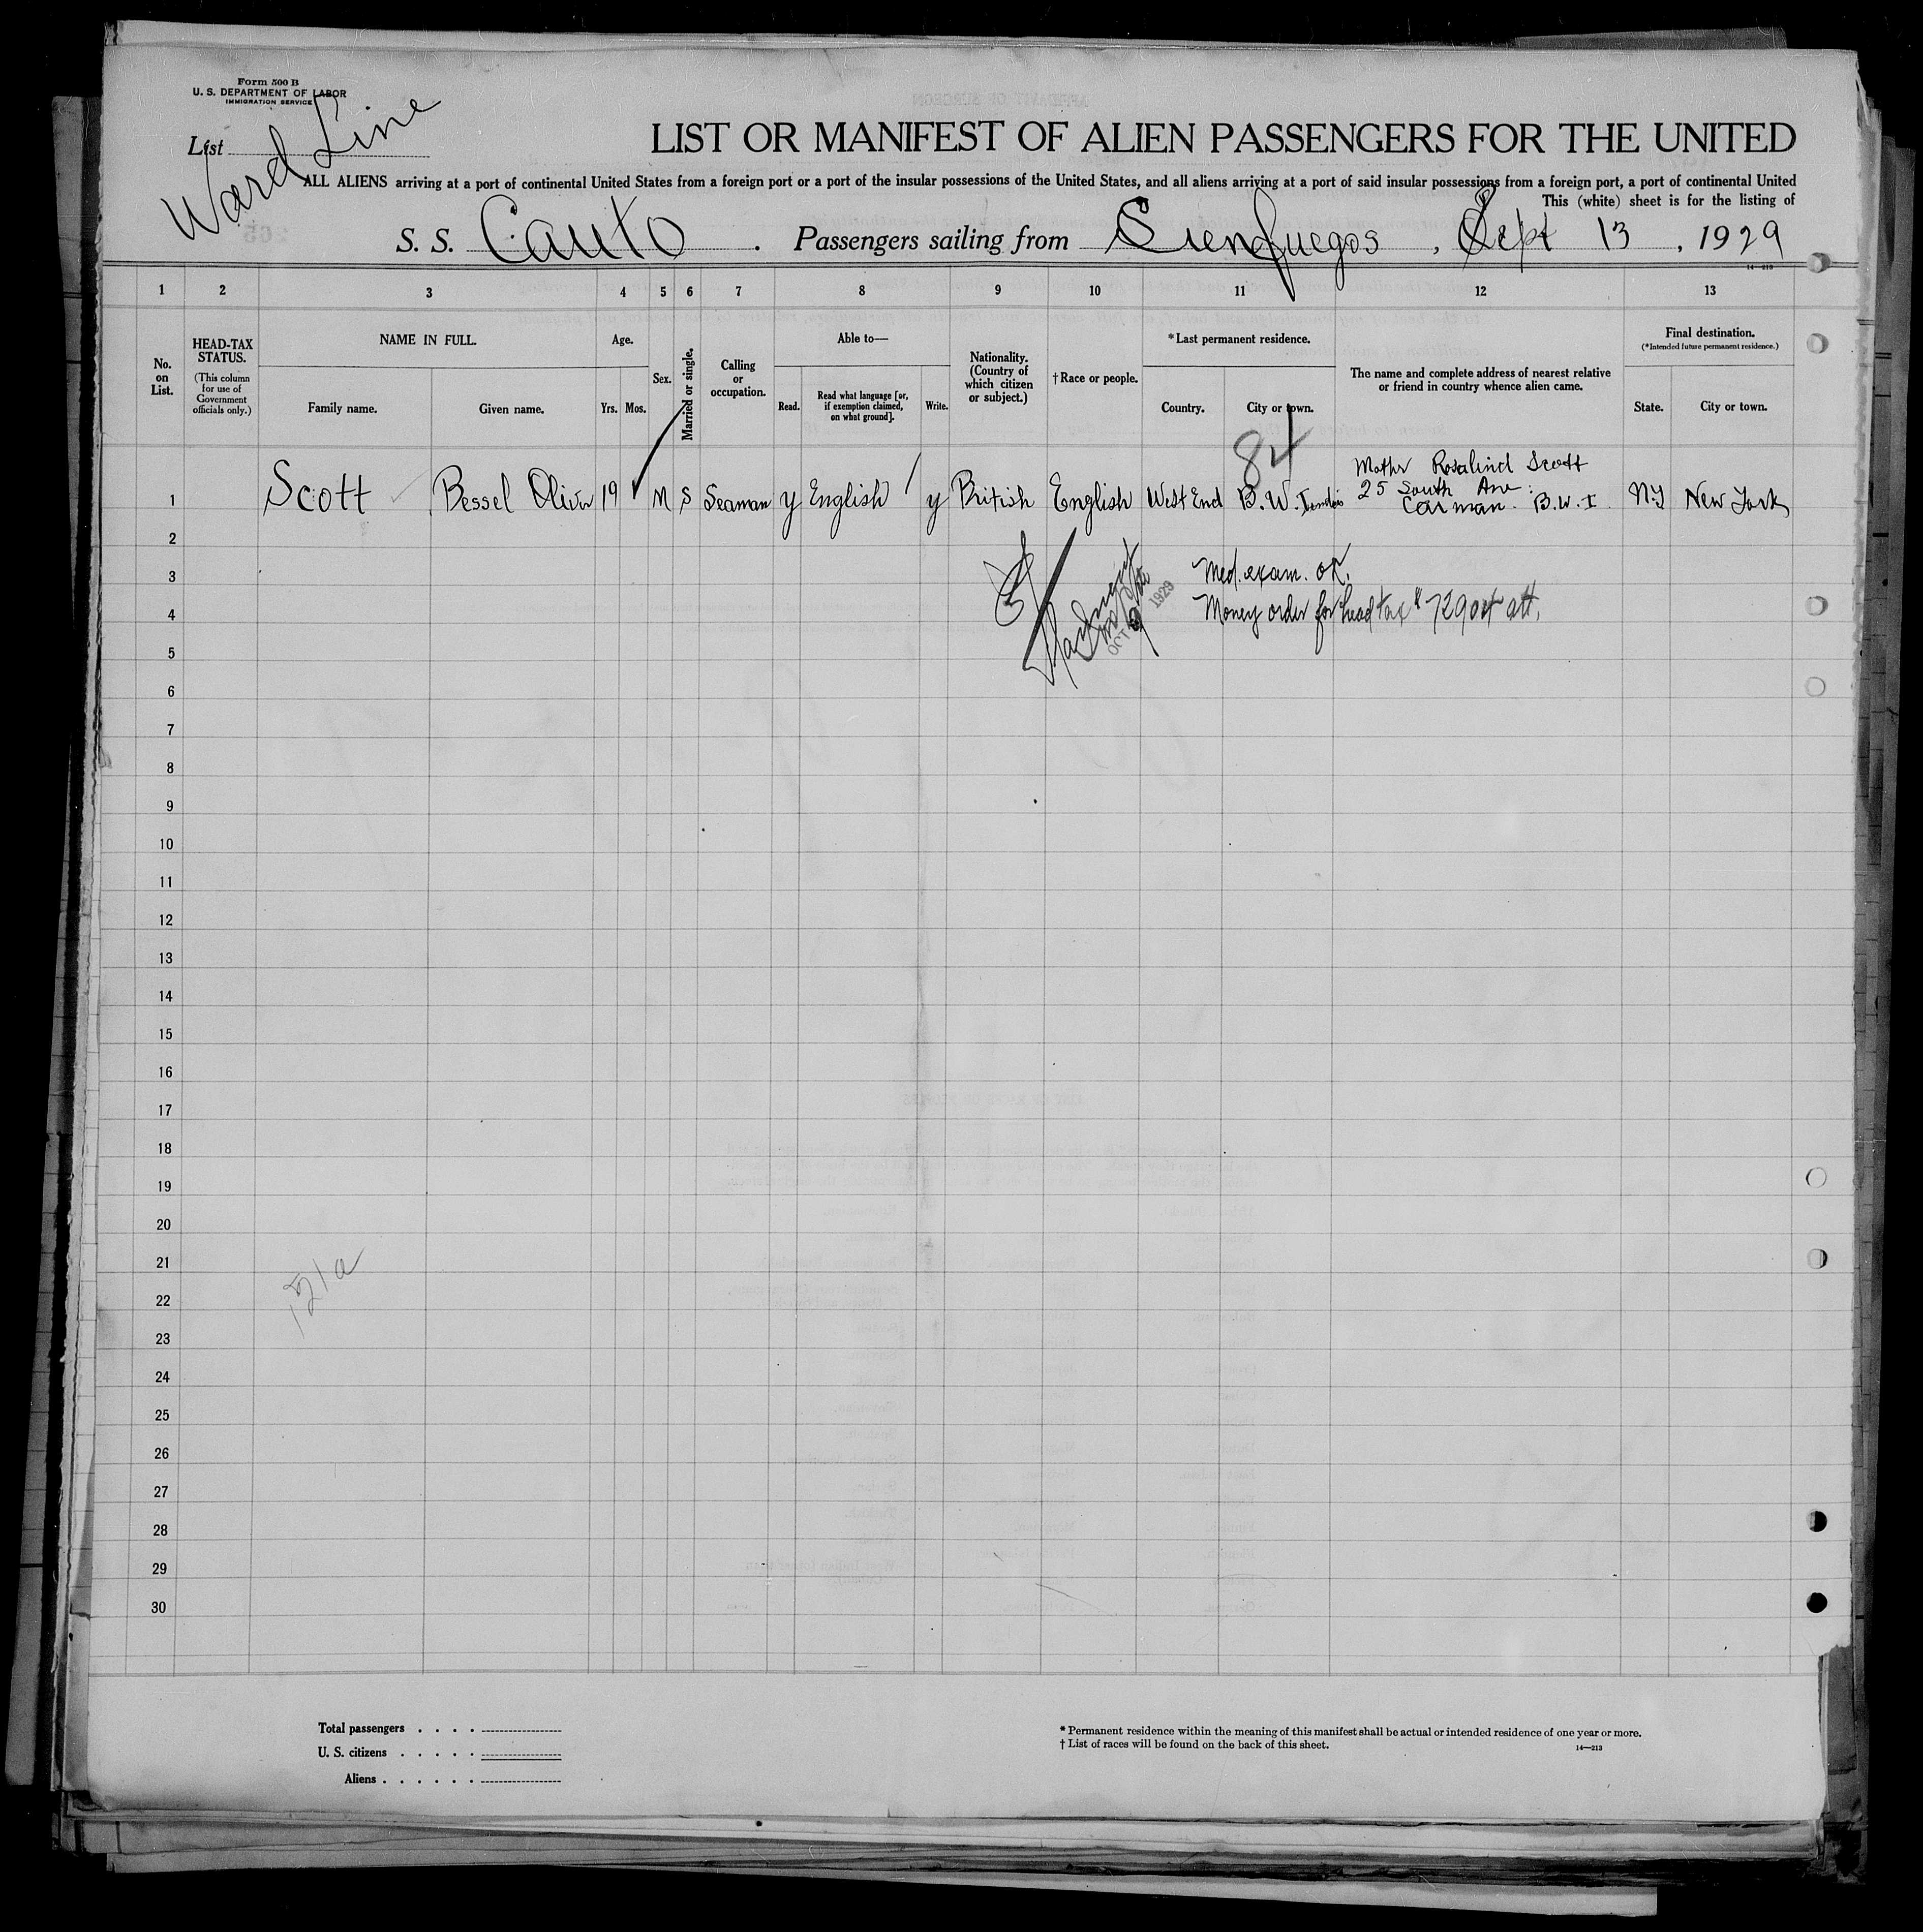 Form 500 B
U. S. DEPARTMENT OF LABOR
IMMIGRATION SERVICE
List
Ward Line
LIST OR MANIFEST OF ALIEN PASSENGERS FOR THE UNITED
ALL ALIENS arriving at a port of continental United States from a foreign port or a port of the insular possessions of the United States, and all aliens arriving at a port of said insular possessions from a foreign port, a port of continental United
This (white) sheet is for the listing of
S. S. Cauto . Passengers sailing from Sienfuegos , Sept 13 , 1929
14—213
1 2 3 4 5 6 7 8 9 10 11 12 13
No. on List.
HEAD-TAX STATUS.
(This column for use of Government officials only.)
NAME IN FULL.
Family name. Given name.
Age.
Yrs. Mos.
Sex.
Married or single.
Calling or occupation.
Able to—
Read. Read what language [or, if exemption claimed, on what ground]. Write.
Nationality. (Country of which citizen or subject.)
†Race or people.
*Last permanent residence.
Country. City or town.
The name and complete address of nearest relative or friend in country whence alien came.
Final destination.
(*Intended future permanent residence.)
State. City or town.
84
1 Scott Bessel Oliver 19 M S Seaman y English y British English West End B. W. Indies
Mother Rosalind Scott
25 South Ave:
Carman. B.W.I.
N.Y New York
2
3
4
5
6
7
8
9
10
11
12
13
14
15
16
17
18
19
20
21
22
23
24
25
26
27
28
29
30
Med. exam. OK.
Money order for head tax
OCT 1929
Total passengers . . . .
U. S. citizens . . . . .
Aliens . . . . . .
* Permanent residence within the meaning of this manifest shall be actual or intended residence of one year or more.
† List of races will be found on the back of this sheet.
14—213